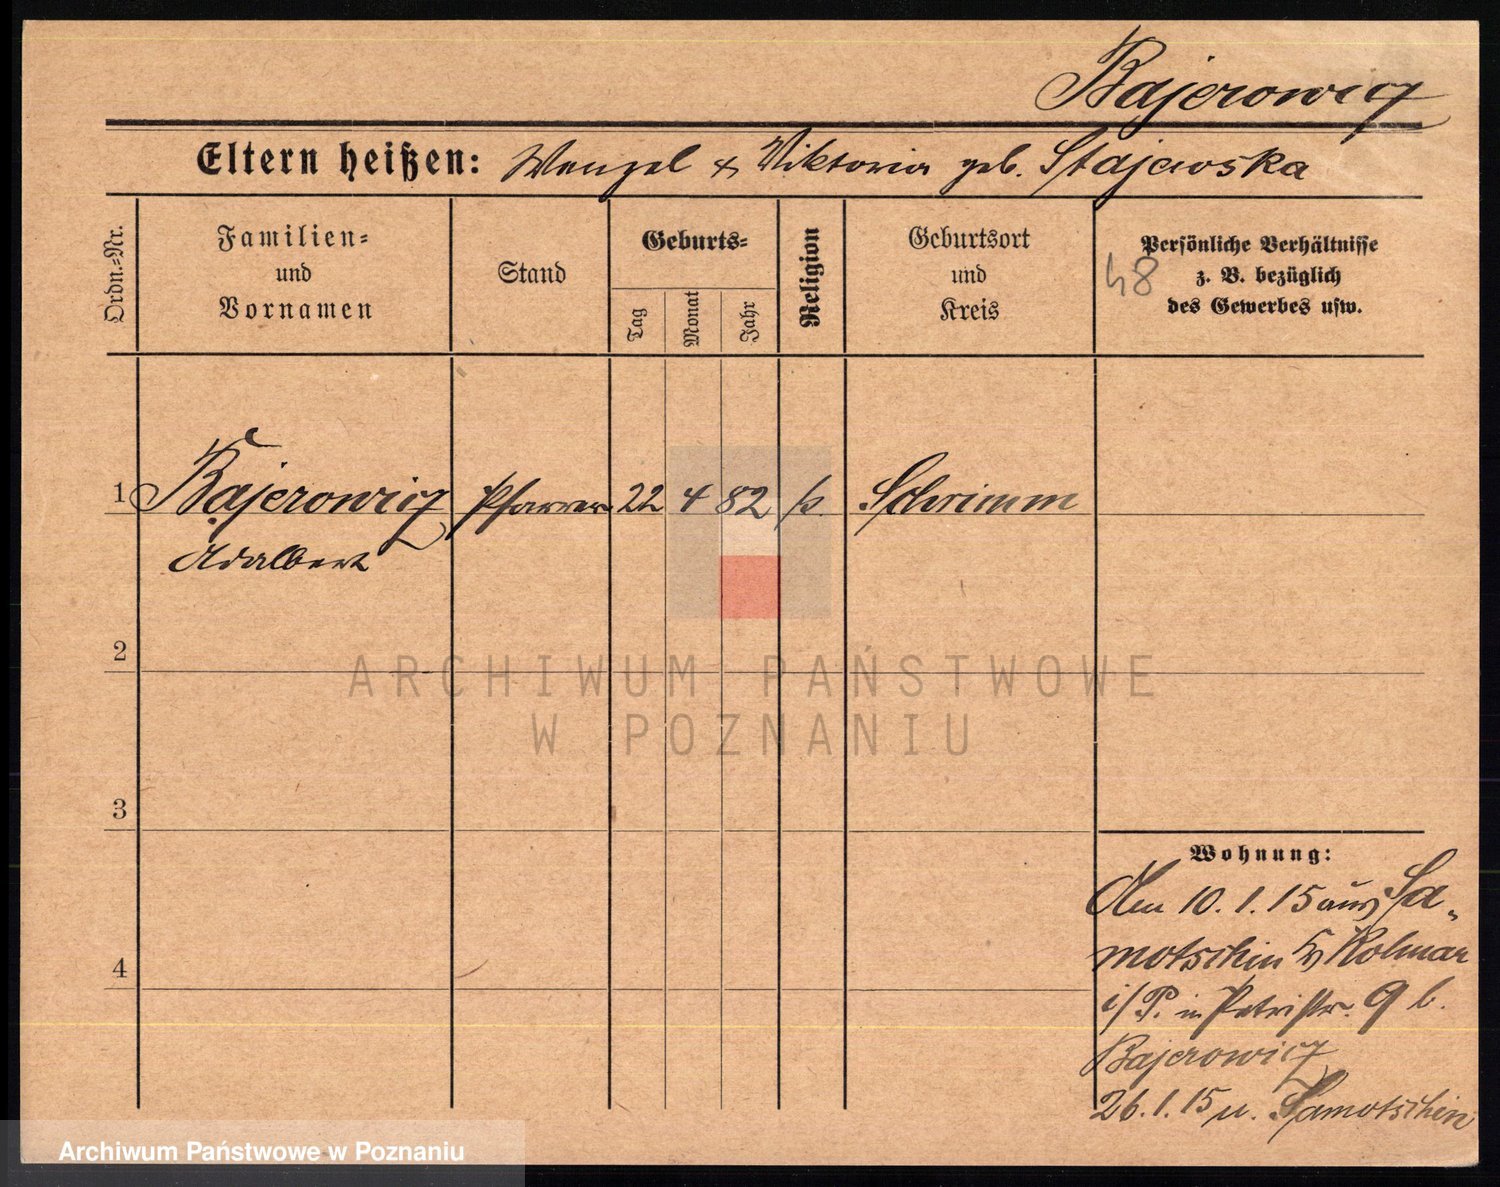 Bajerowicz
Eltern heißen: Wenzel & Viktoria geb. Stajewska
Ordn.=Nr.
Familien=
und
Vornamen
Stand
Geburts=
Tag
Monat
Jahr
Religion
Geburtsort
und
Kreis
Persönliche Verhältnisse
z. B. bezüglich
des Gewerbes usw.
48
1 Bajerowicz Pfarrer 22 4 82 k. Schrimm
Adalbert
2
ARCHIWUM PAŃSTWOWE
W POZNANIU
3
Wohnung:
Am 10. 1. 15 aus Sa-
motschin Kr Kolmar
i/P. in Petristr. 9 b.
Bajerowicz
26. 1. 15 n. Samotschin
4
Archiwum Państwowe w Poznaniu